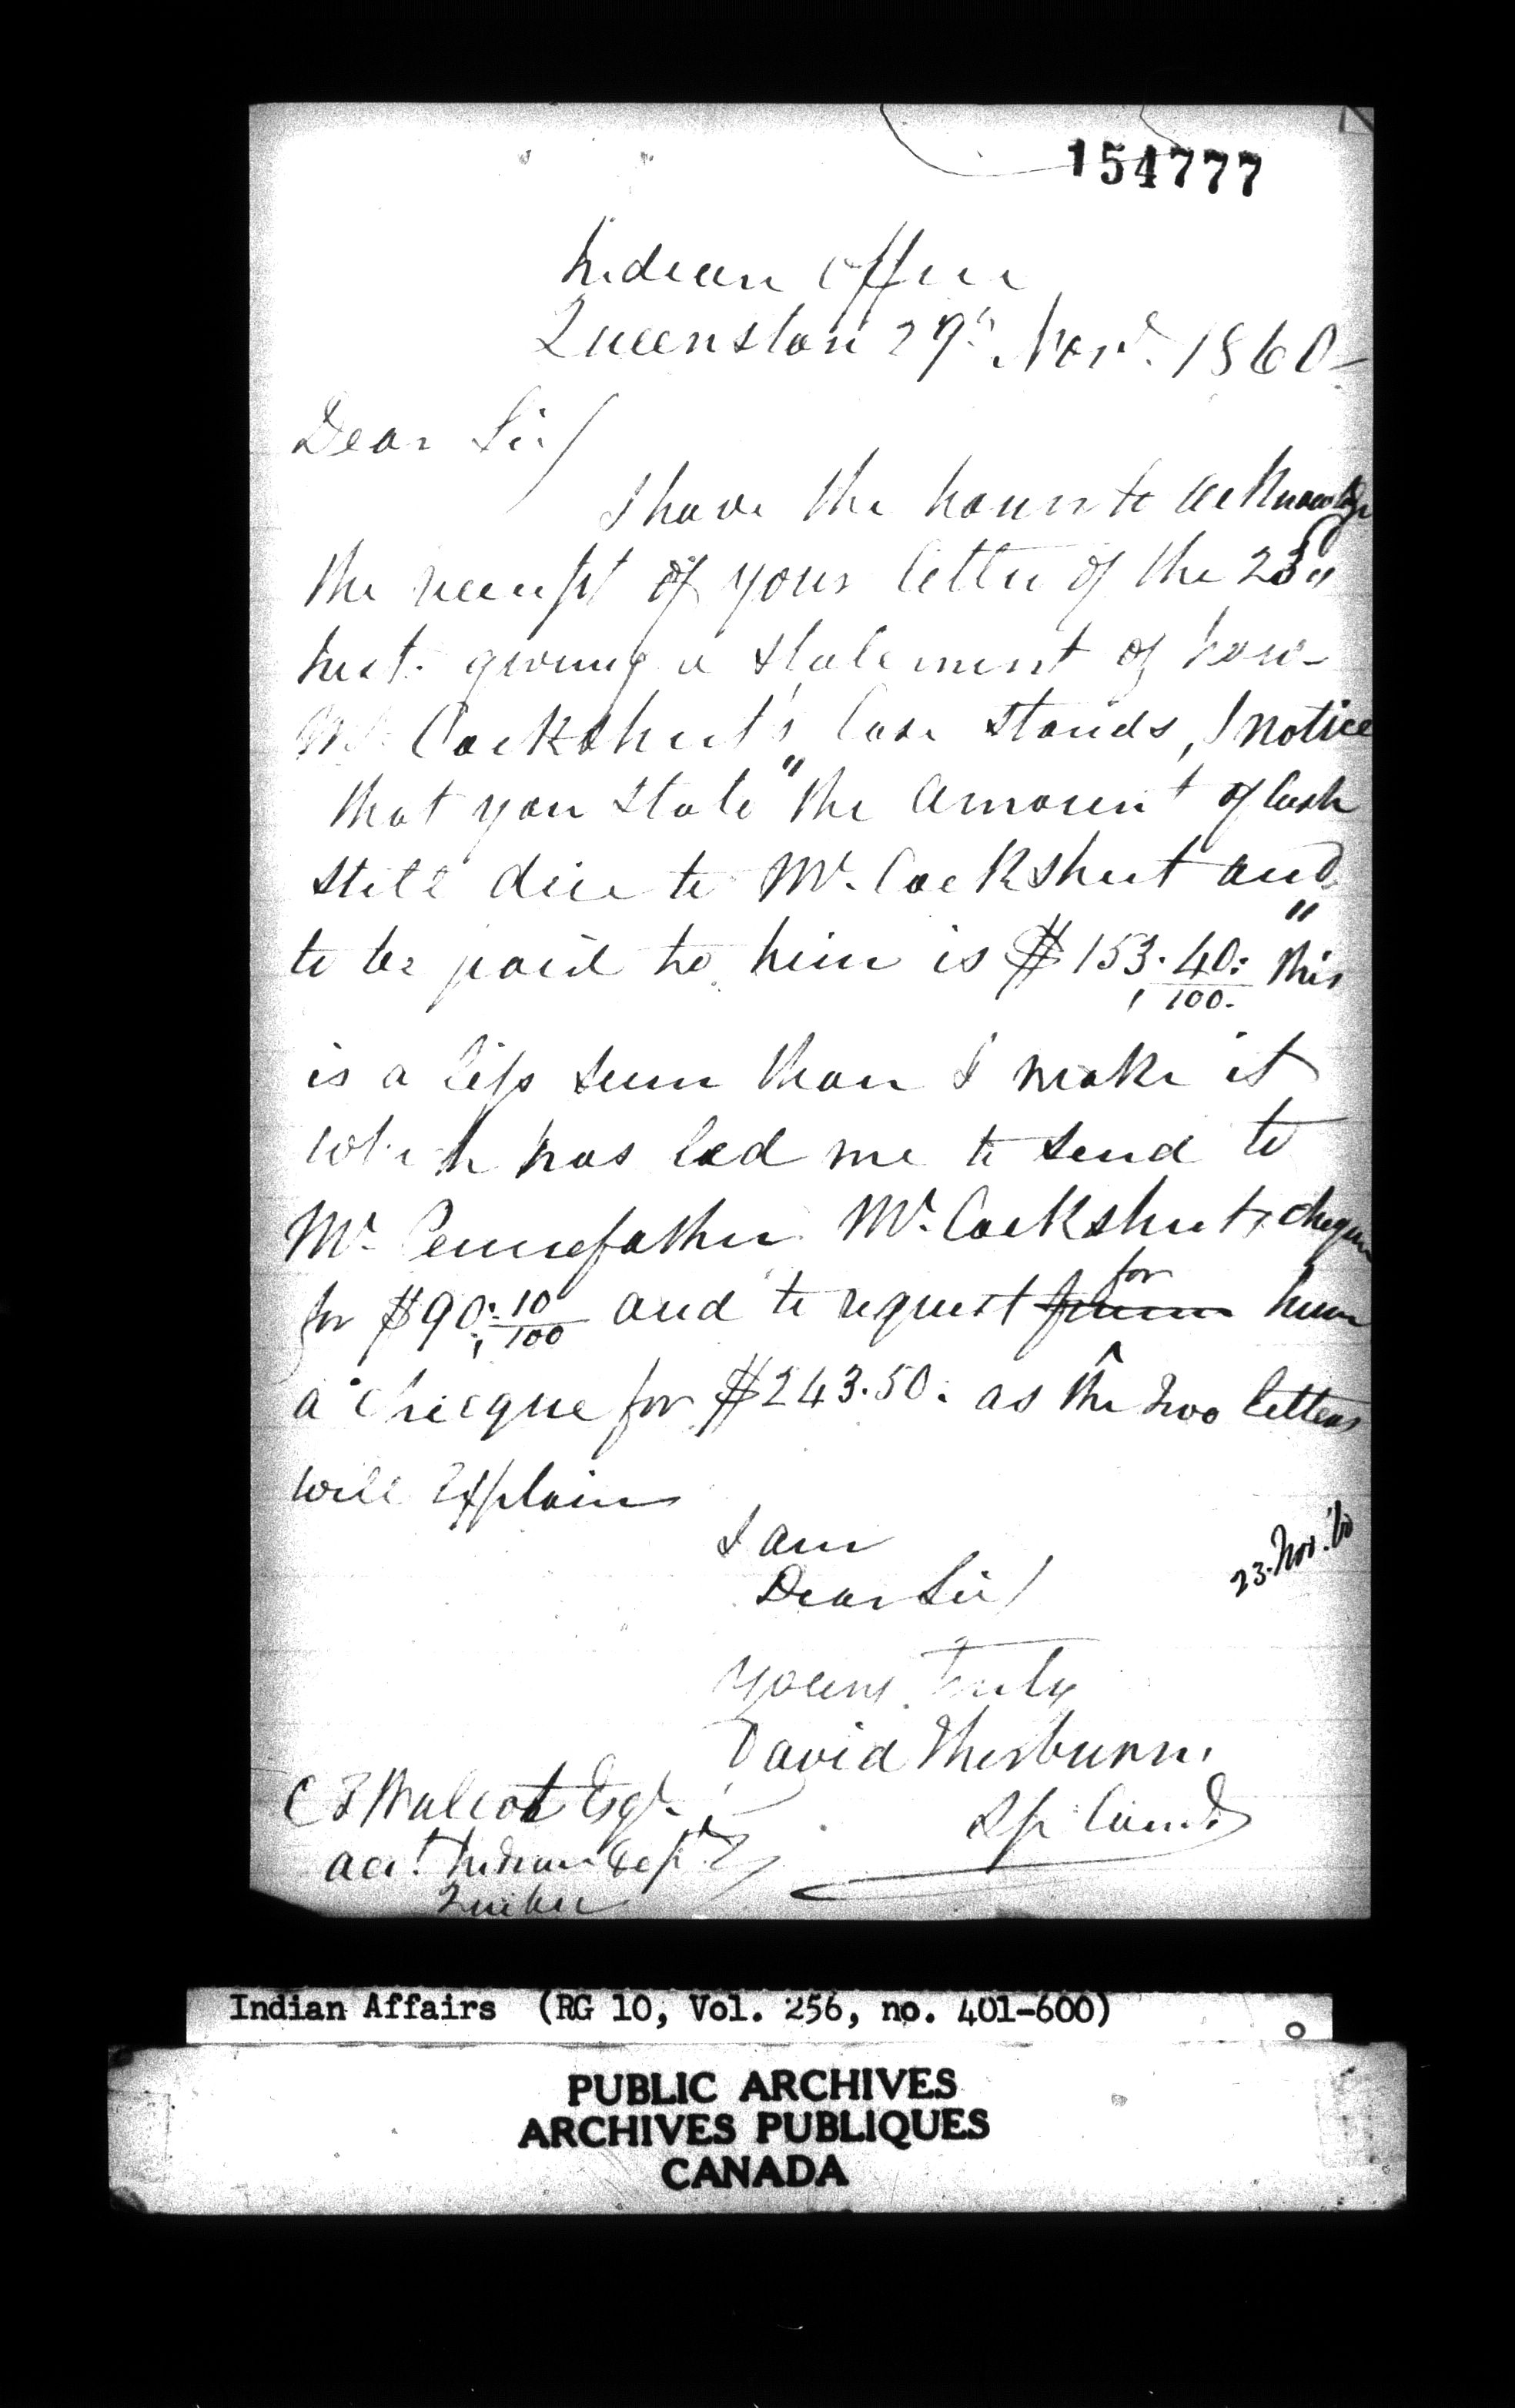 154777
Indian Office
Queenston 27th Novr. 1860
Dear Sir/
I have the honor to acknowledge
the receipt of your letter of the 23d
Inst. giving a statement of how
Mr. Cockshut's Case stands, I notice
that you state "the amount of Cash
still due to Mr. Cockshut and
to be paid to him is $153.40/100." this
is a less sum than I make it
which has led me to send to
Mr. Pennefather Mr. Cockshuts cheque
for $90.10/100 and to request for him
a checque for $243.50. as the two letters
will Explain
I am
Dear Sir/
23. Nov. 60
Yours Truly
David Thorburn.
Sp. Comr.
C T Walcot Esqr.
Acct. Indian Dept.
Quebec
Indian Affairs (RG 10, Vol. 256, no. 401-600)
PUBLIC ARCHIVES
ARCHIVES PUBLIQUES
CANADA